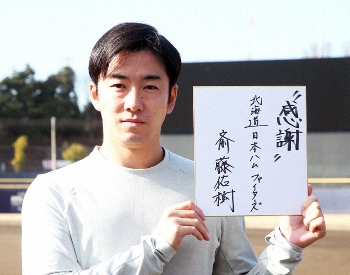 〝感謝〟
北海道日本ハムファイターズ
斎藤佑樹